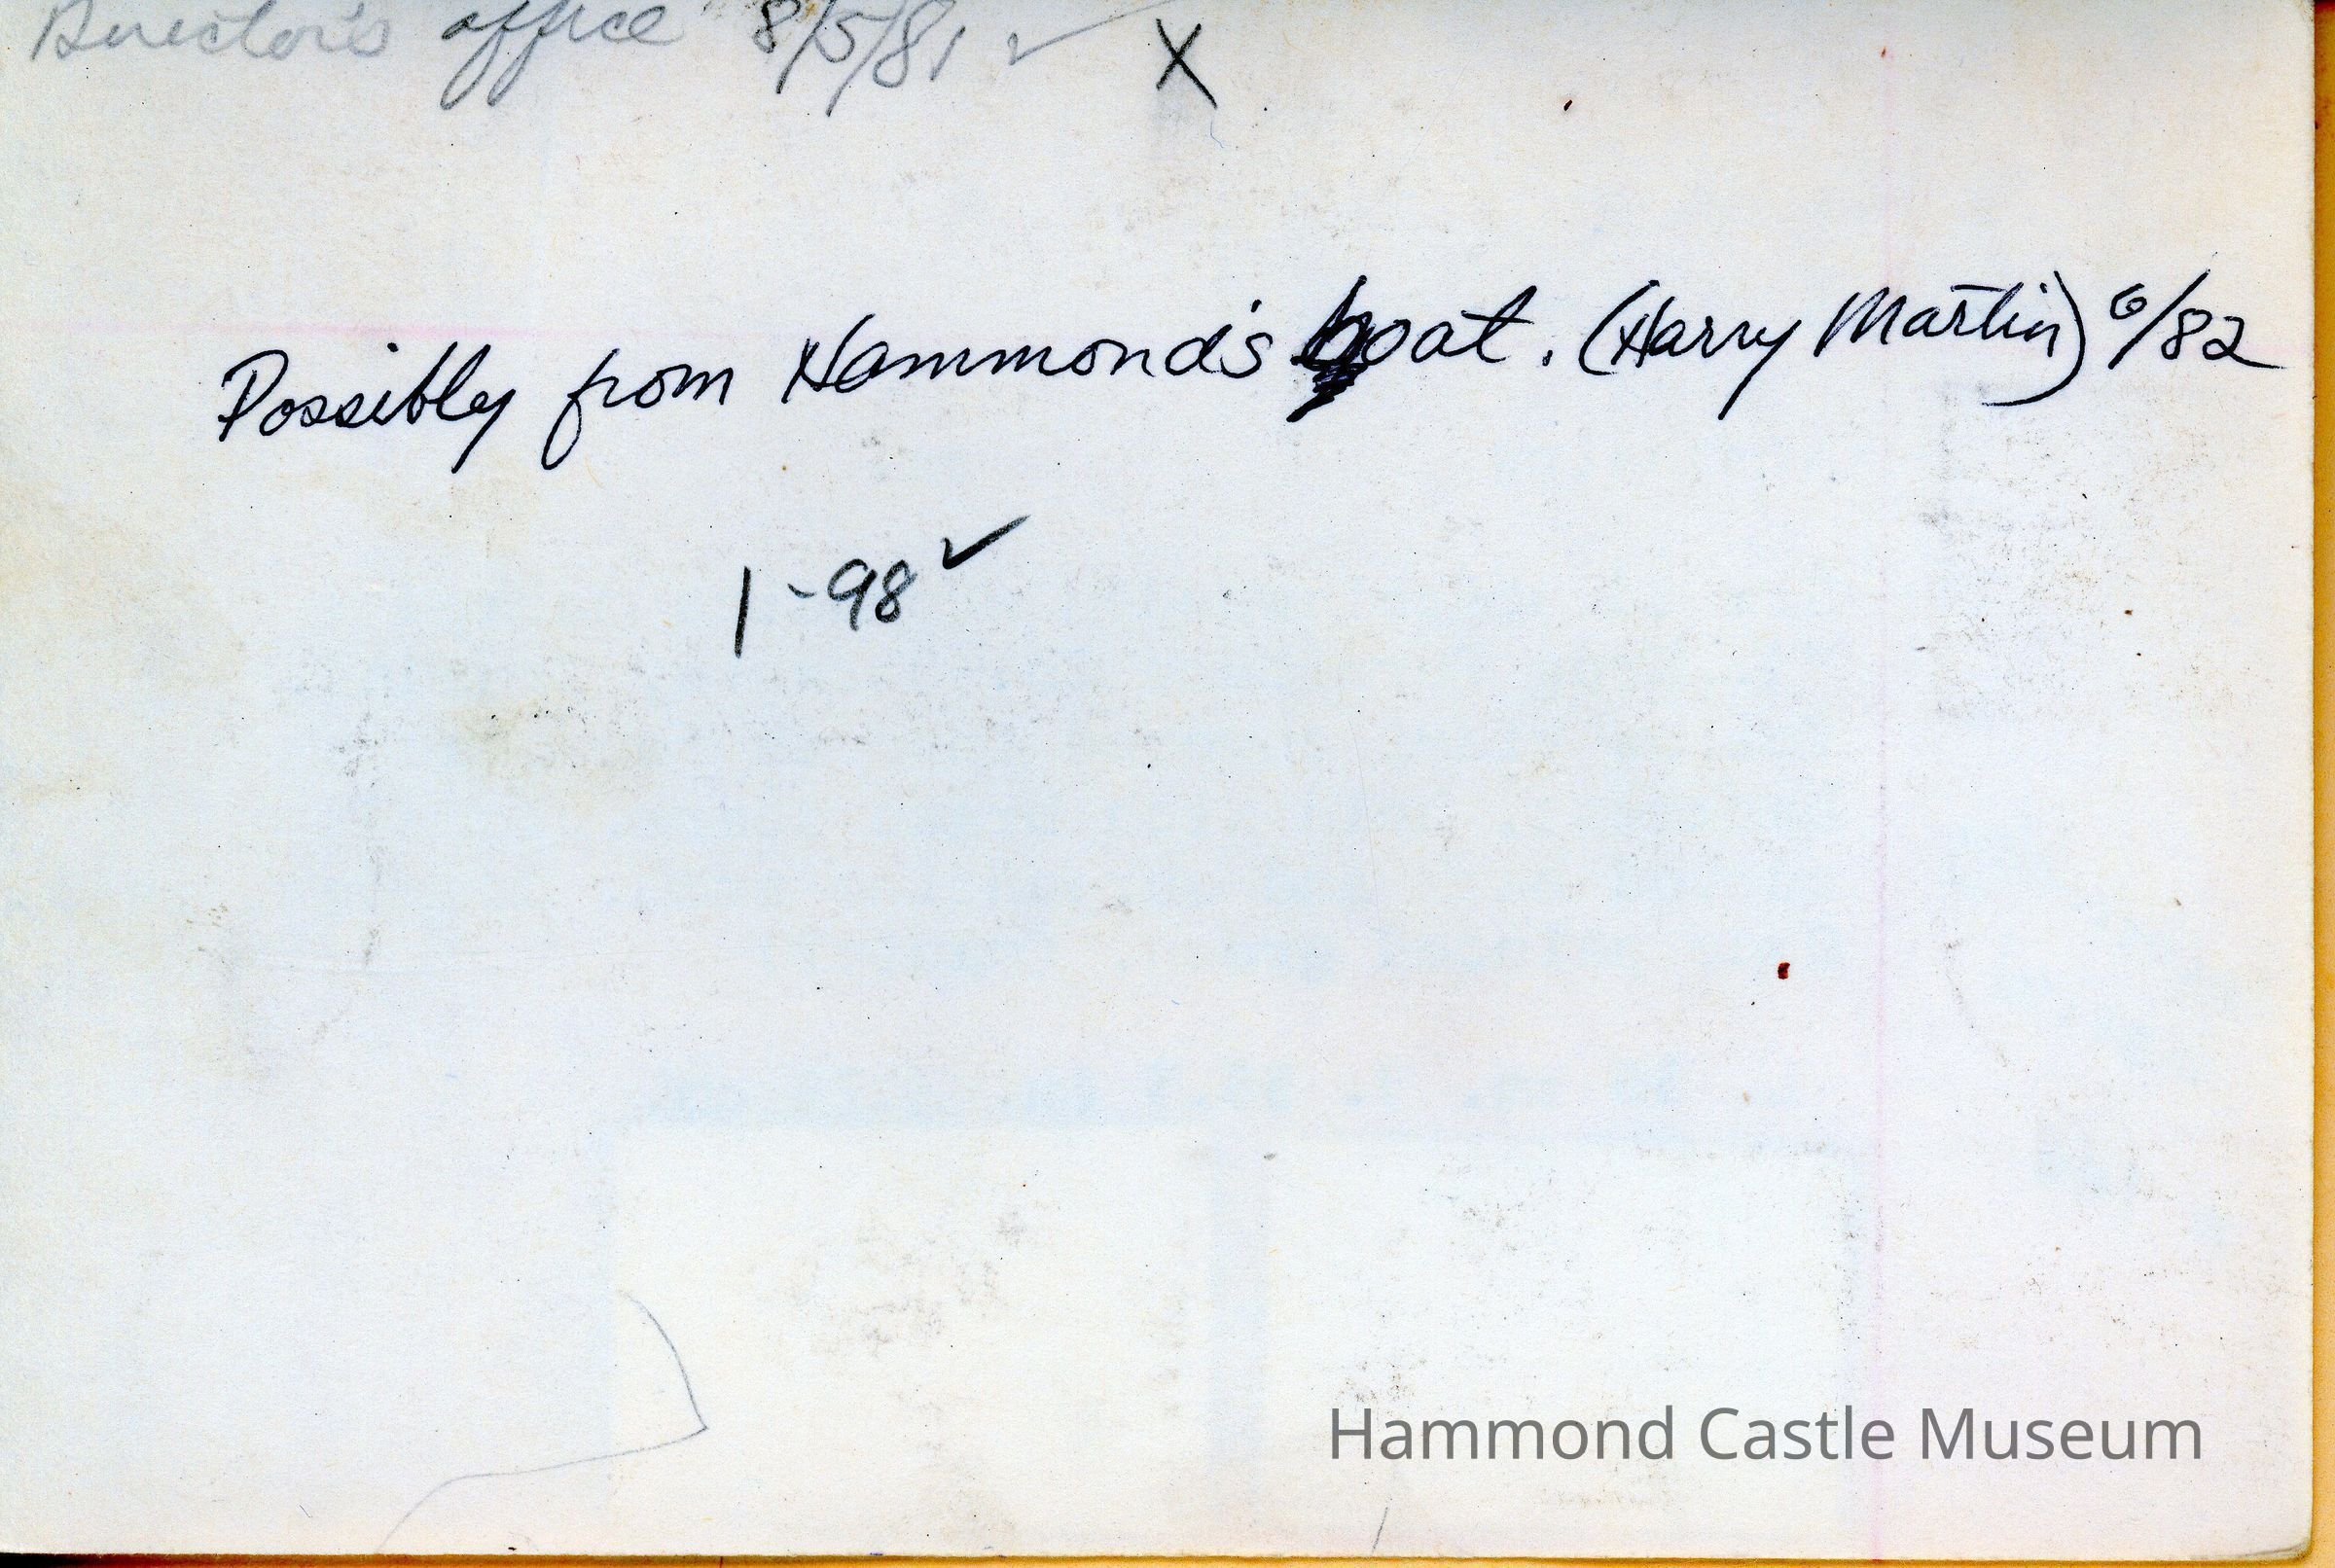 Director's office 8/5/81 ✓ X
Possibly from Hammond's boat. (Harry Martin) 6/82
1-98 ✓
Hammond Castle Museum